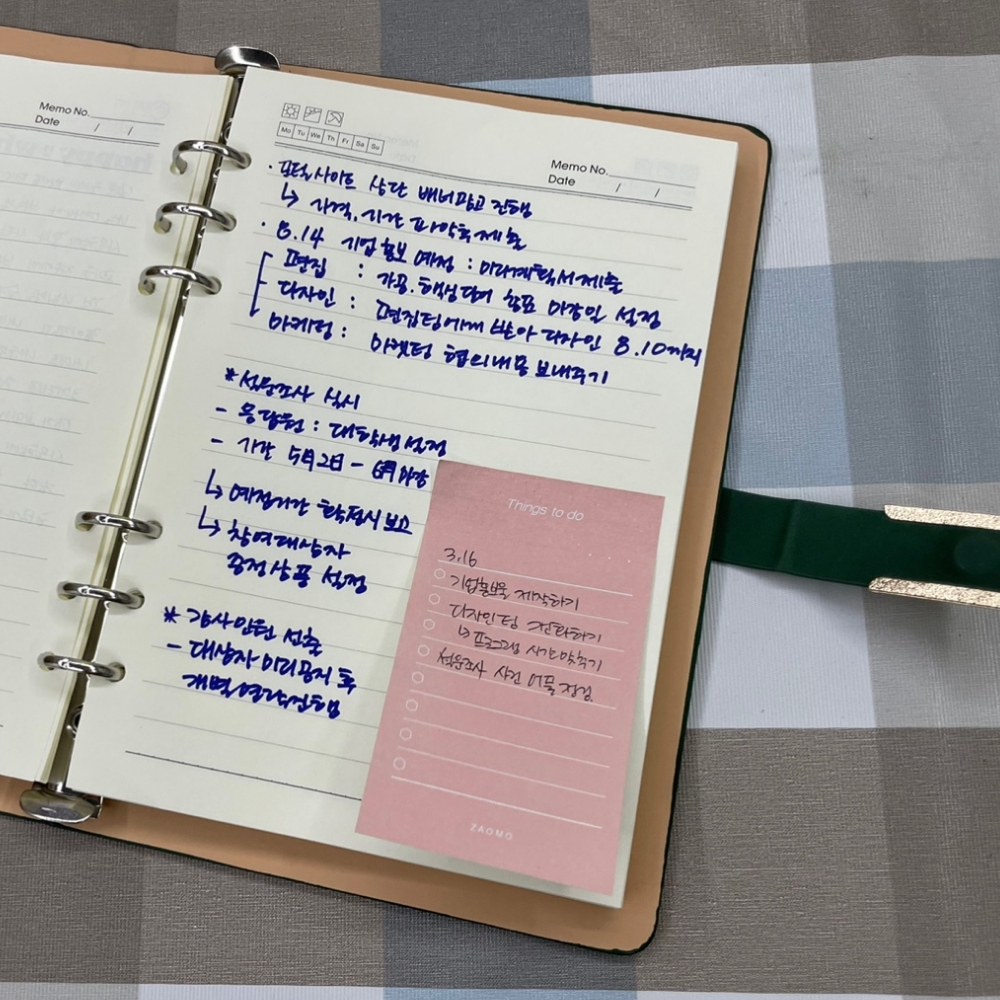 Memo No.
Date / /
Mo Tu We Th Fr Sa Su
Memo No.
Date / /
· 포털사이트 상단 배너광고 진행
↳ 가격, 시간 파악 후 제출
· 8.14 기업홍보 예정 : 미리계획서제출
편집 : 가공. 핵심단어 창표 마감일 설정
디자인 : 편집팀에게 받아 디자인 8.10까지
마케팅 : 마켓팅 협의내용 보내주기
* 설문조사 실시
- 응답원 : 대학생 설정
- 기간 5月2日 - 6月 마감
↳ 예정기간 확정시 보고
↳ 참여대상자
증정상품 설정
* 감사인원 선출
- 대상자 미리공지 후
개별연락진행
Things to do
3.16
기업홍보물 제작하기
디자인팀 전화하기
↳ 프로그램 시간맞추기
설문조사 사전 어플 점검
ZAOMO